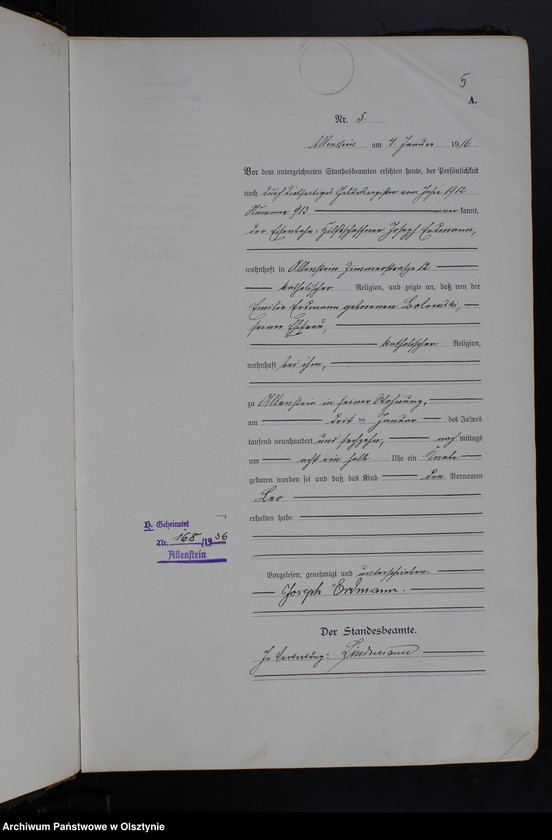 5
A.
Nr. 5.
Allenstein am 4 Januar 1916
Vor dem unterzeichneten Standesbeamten erschien heute, der Persönlichkeit
nach durch diesseitiges Geburtsregister vom Jahre 1912
Nummer 913 kannt,
der Eisenbahn-Hilfsschaffner Joseph Erdmann,
wohnhaft in Allenstein Zimmerstrasse 12
katholischer Religion, und zeigte an, daß von der
Emilie Erdmann geborenen
seiner Ehefrau,
katholischer Religion,
wohnhaft bei ihm,
zu Allenstein in seiner Wohnung,
am drit Januar des Jahres
tausend neunhundert und sechzehn, nach mittags
um acht ein halb Uhr ein Knabe
geboren worden sei und daß das Kind den Vornamen
Leo
erhalten habe.
H. Geheiratet
Nr. 168/1936
Allenstein
Vorgelesen, genehmigt und unterschrieben.
Joseph Erdmann.
Der Standesbeamte.
In Vertretung: Lindemann
Archiwum Państwowe w Olsztynie